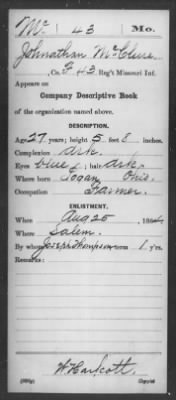 Mc 43 Mo.
Johnathan McClure
, Co. F 43 Reg't Missouri Inf.
Appears on
Company Descriptive Book
of the organization named above.
DESCRIPTION.
Age 27 years; height 5 feet 8 inches.
Complexion dark.
Eyes blue; hair dark.
Where born Logan, Ohio.
Occupation Farmer.
ENLISTMENT.
When Aug 25, 1864
Where Salem.
By whom Joseph Thompson term 1 y'rs.
Remarks:
Copyist